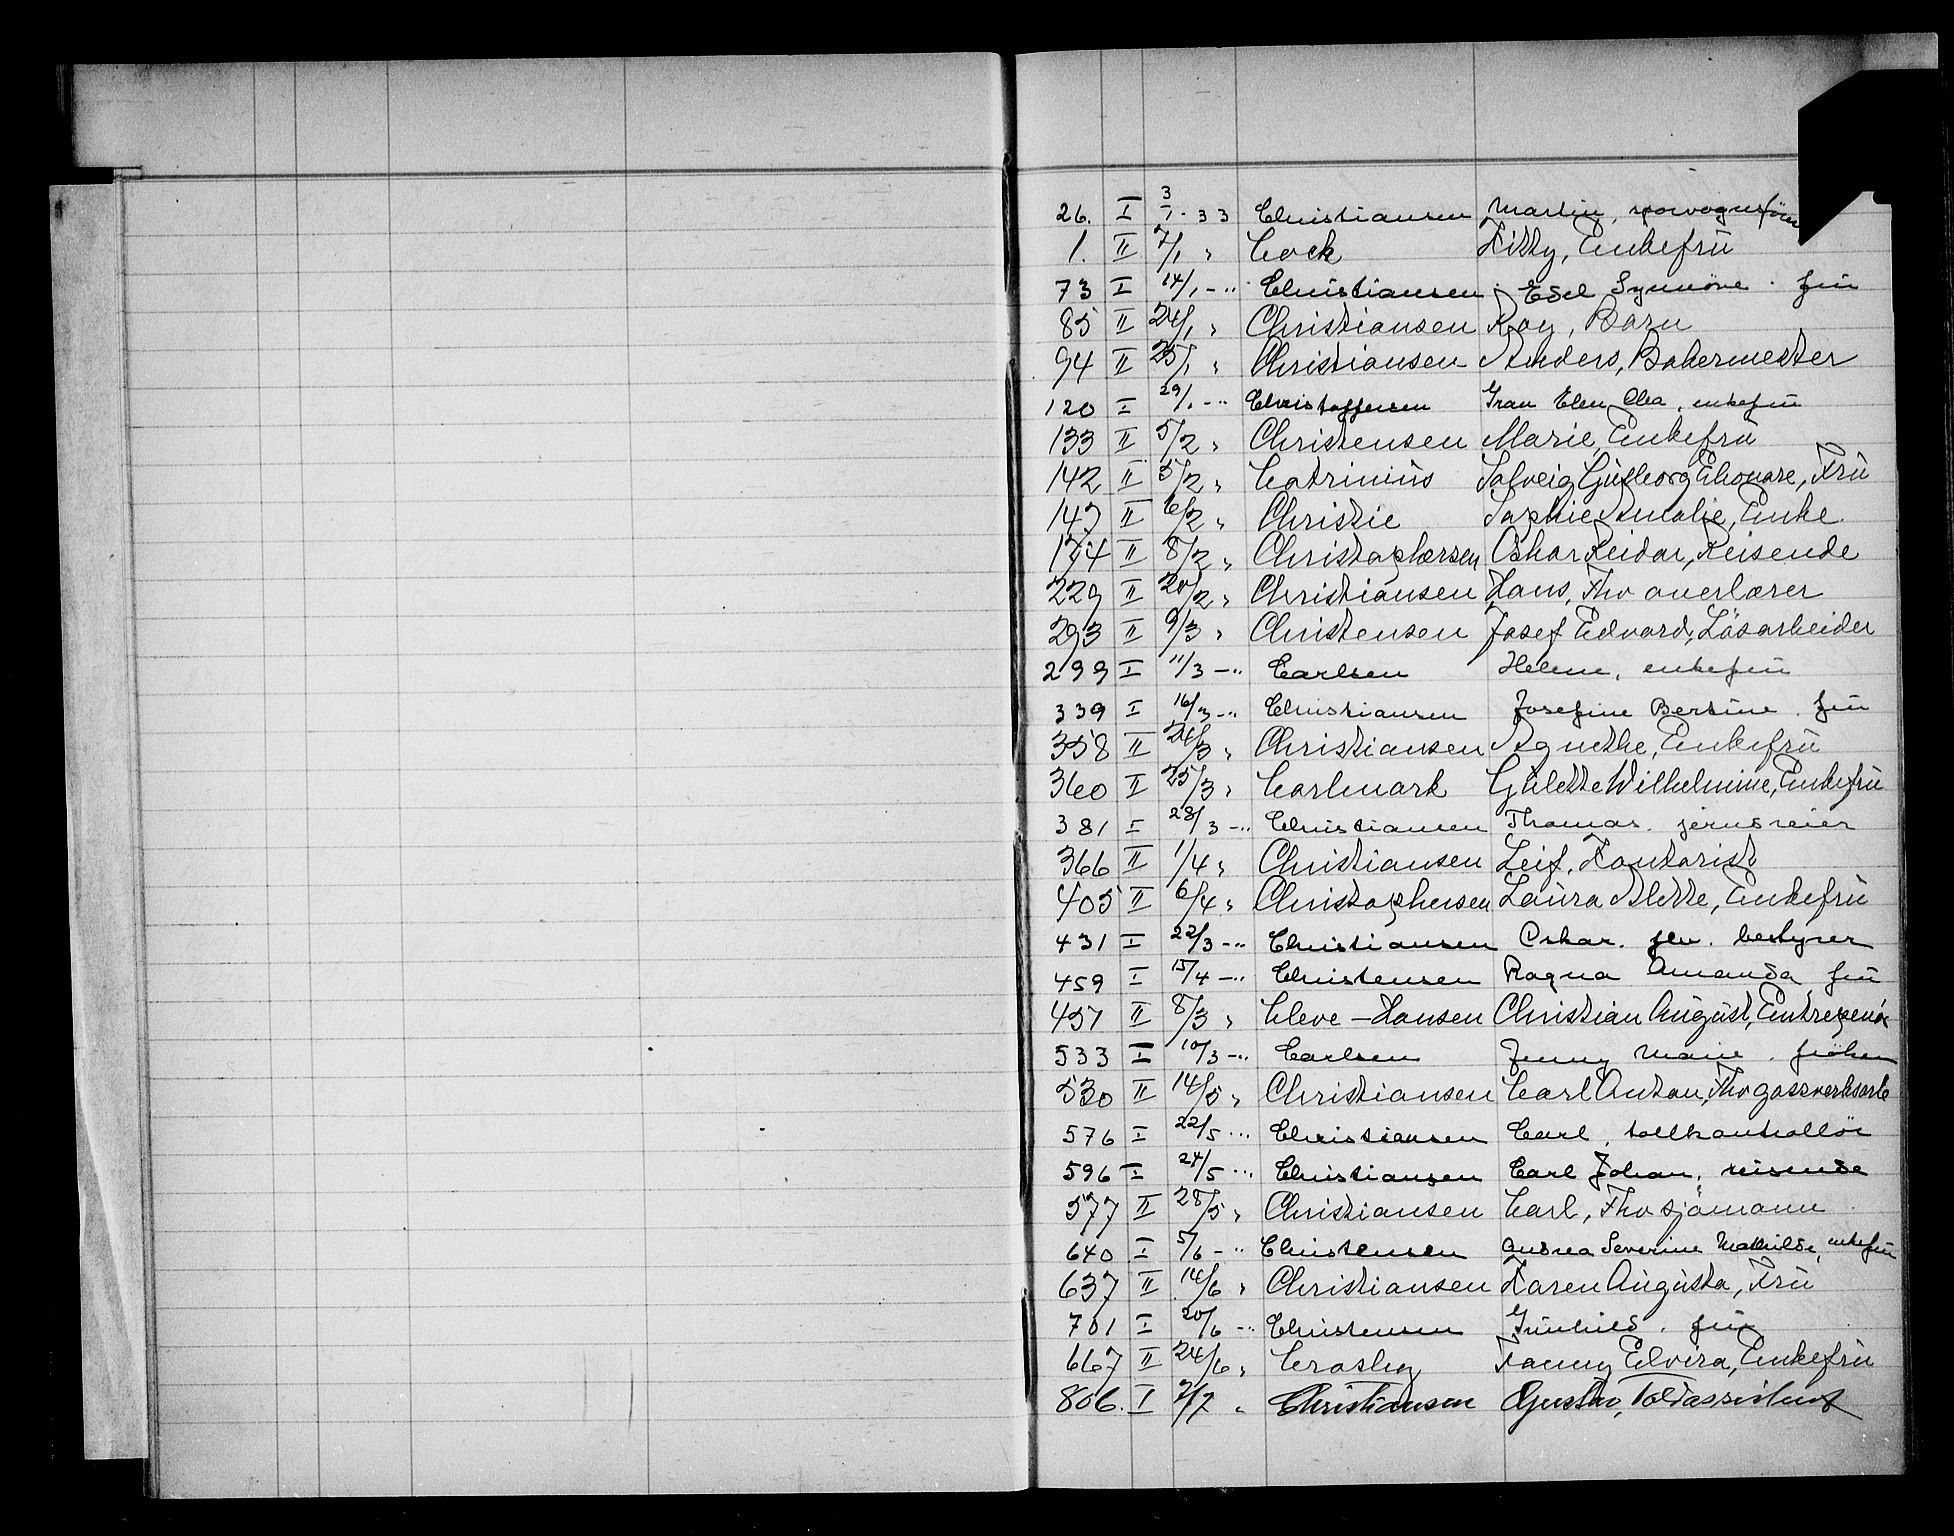 26. I 3/I - 33 Christiansen Martin, sporvognsför
1. II 7/1 " Cock Kitty, Enkefrü
73 I 14/1 - " Christiansen Edel Synnöve. frü
85 II 24/1 " Christiansen Roy, Barn
94 II 25/1 " Christiansen Anders, Bakermester
120 I 29/1 - " Christoffersen Gran Elen Olea, enkefrü
133 II 5/2 " Christensen Marie, Enkefrü
142 II 5/2 " Catrinius Solveig Gudborg Elronore, Frü
147 II 6/2 " Christie Sophie Amalie, Enke
174 II 8/2 " Christophersen Oskar Reidar, Reisende
229 II 20/2 " Christiansen Hans, Fhv overlærer
293 II 9/3 " Christensen Josef Edvard, Lösarbeider
299 I 11/3 - " Carlsen Helene, enkefrü
339 I 16/3 - " Christiansen Josefine Bertine. frü
358 II 24/3 " Christiansen Agnethe, Enkefrü
360 II 25/3 " Carlmark Wilhelmine, Enkefrü
381 I 28/3 - " Christiansen Thomas. jerndreier
366 II 1/4 " Christiansen Leif, Kontorist
405 II 6/4 " Christophersen Laura Alette, Enkefrü
431 I 22/3 - " Christiansen Oskar. fhv. bestyrer
459 I 15/4 - " Christensen Ragna Amanda, frü
457 II 8/3 " Cleve - Hansen Christian August, Entreprenör
533 I 10/3 - " Carlsen Jenny Marie. fröken
530 II 14/5 " Christiansen Carl Anton, Fhv gassverksarb
576 I 22/5 " Christiansen Carl, tollkontrollör
596 I 24/5 " Christiansen Carl Johan, reisende
577 II 28/5 " Christiansen Carl, Fhv sjömann
640 I 5/6 - " Christensen Andrea Severine Mathilde, enkefrü
637 II 14/6 " Christiansen Karen Augusta, Frü
701 I 20/6 - " Christensen Gunhild. frü
667 II 24/6 " Crasby Fanny Elvira, Enkefrü
806. I 7/7 " Christiansen Gustav, Toldassistent